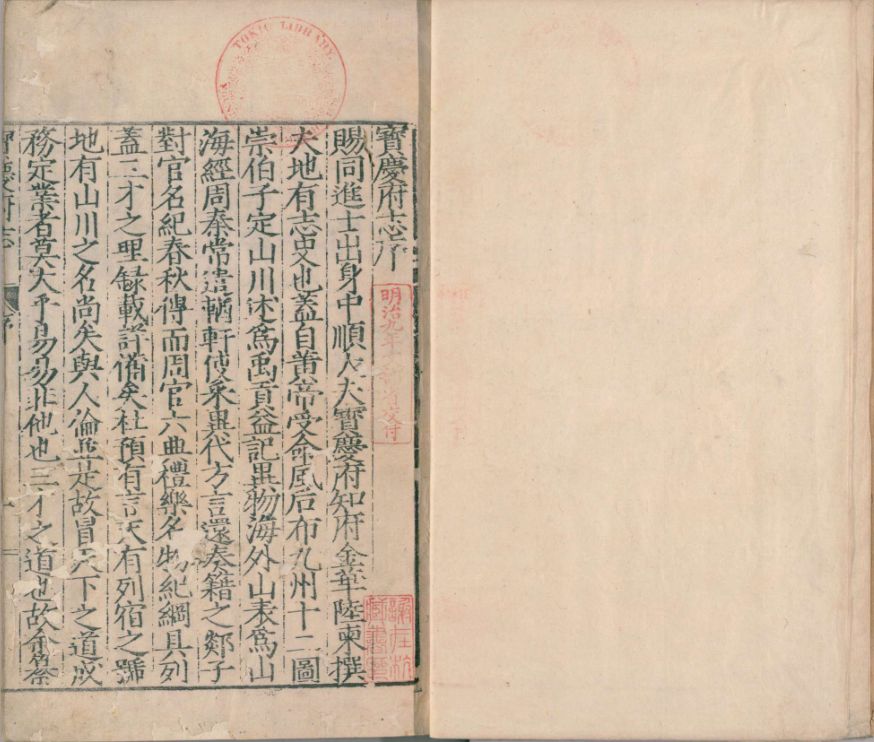 寳慶府志序
賜同進士出身中順大夫寳慶府知府金華陸柬撰
夫地有志史也蓋自黄帝受命風后布九州十二圖
崇伯子定山川述爲禹貢益記異物海外山表爲山
海經周秦常遣輶軒使采異代方言還奏籍之郯子
對官名紀春秋傳而周官六典禮樂名物紀綱具列
蓋三才之理録載詳備矣杜預有言天有列宿之號
地有山川之名尚矣與人倫並是故冒天下之道成
務定業者莫大乎易易非他也三才之道也故余爲
寶慶府志 序
明治九年
TOKIO LIBRARY